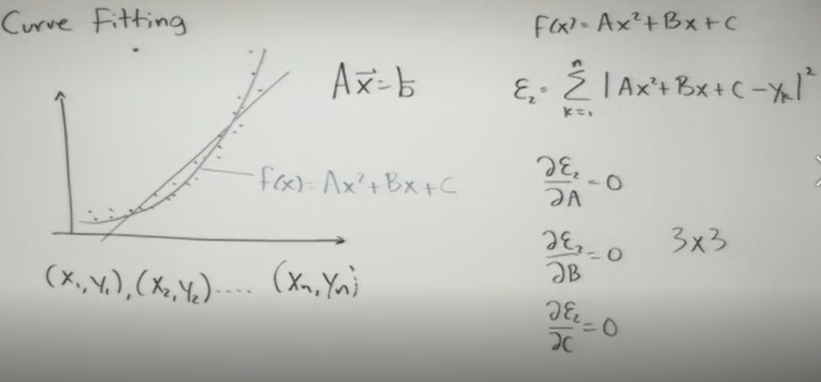 Curve Fitting
Ax⃗=b
f(x)=Ax²+Bx+C
(x₁,y₁),(x₂,y₂).... (xₙ,yₙ)
f(x)=Ax²+Bx+C
ε₂=∑ₖ₌₁ⁿ|Ax²+Bx+C-yₖ|²
∂ε₂/∂A=0
∂ε₂/∂B=0 3x3
∂ε₂/∂C=0